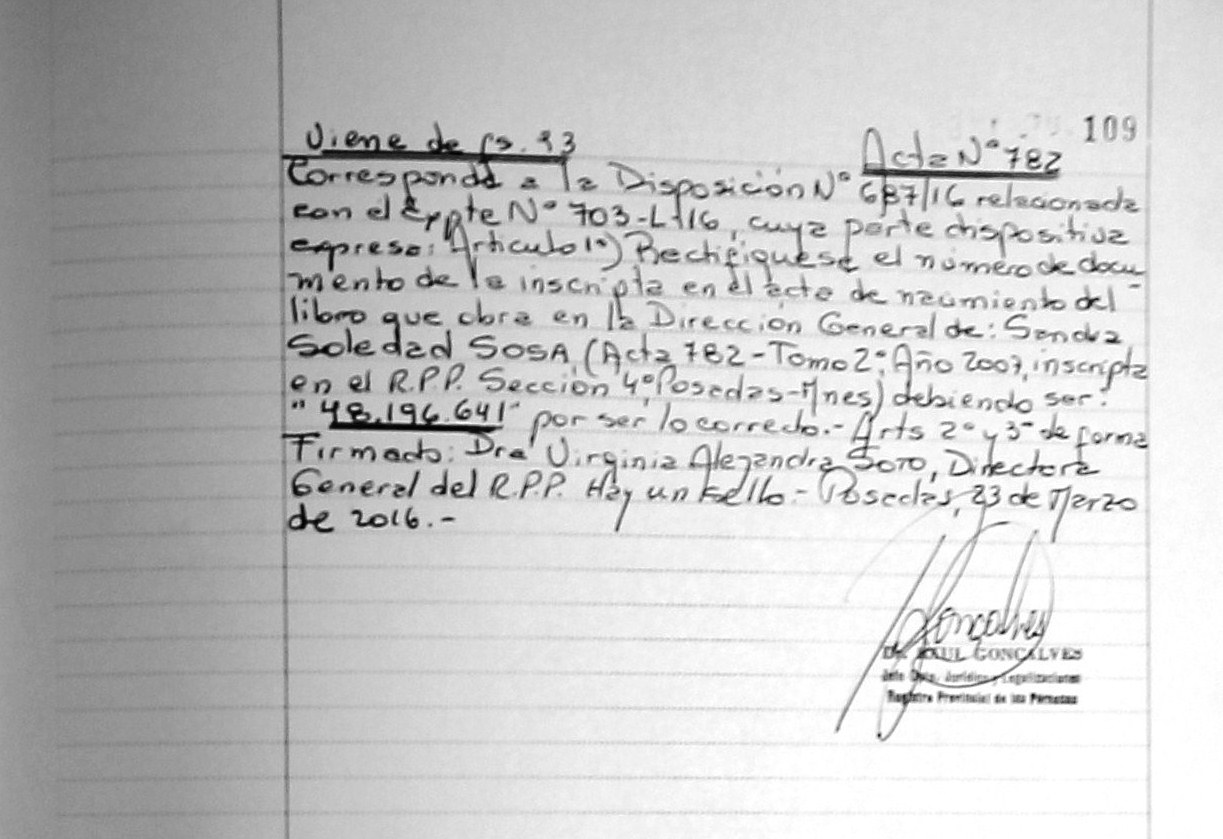 109
Viene de fs. 93 Acta Nº 782
Corresponde a la Disposición Nº 687/16 relacionada
con el Expte Nº 703-L-16, cuya parte dispositiva
expresa: Artículo 1º) Rectifíquese el número de docu
mento de la inscripta en el acta de nacimiento del
libro que obra en la Dirección General de: Sandra
Soledad SOSA (Acta 782-Tomo 2º, Año 2007, inscripta
en el R.P.P. Sección 4º Posadas-Mnes) debiendo ser:
"48.196.641" por ser lo correcto.- Arts 2º y 3º de forma
Firmado: Dra Virginia Alejandra SOTO, Directora
General del R.P.P. Hay un sello.- Posadas, 23 de Marzo
de 2016.-
Gonçalves
Dr. RAUL GONÇALVES
Jefe Dpto. Jurídico y Legalizaciones
Registro Provincial de las Personas